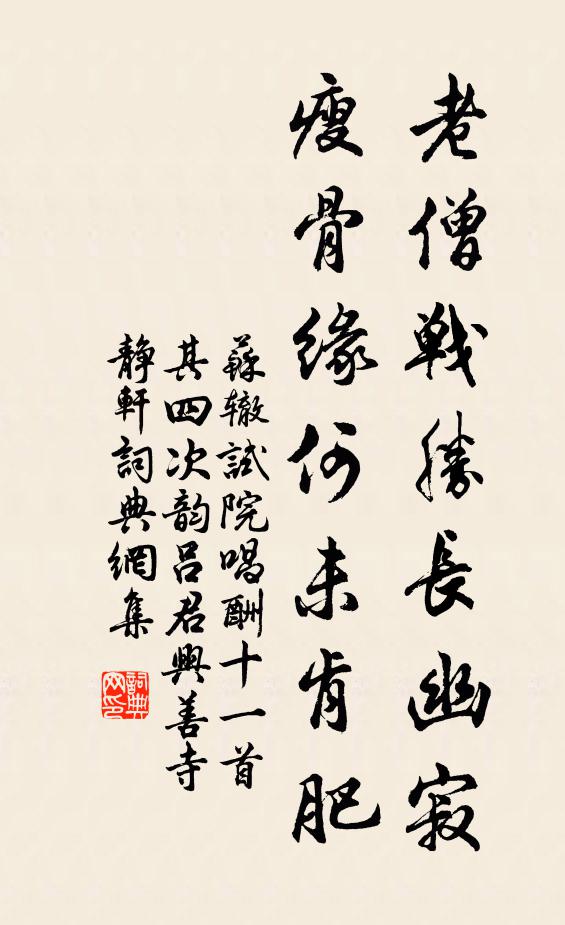 老僧戰勝長幽寂
瘦骨緣何未肯肥
蘇辙試院唱酬十一首
其四次韵吕君興善寺
靜軒詞典網集
詞典
网印